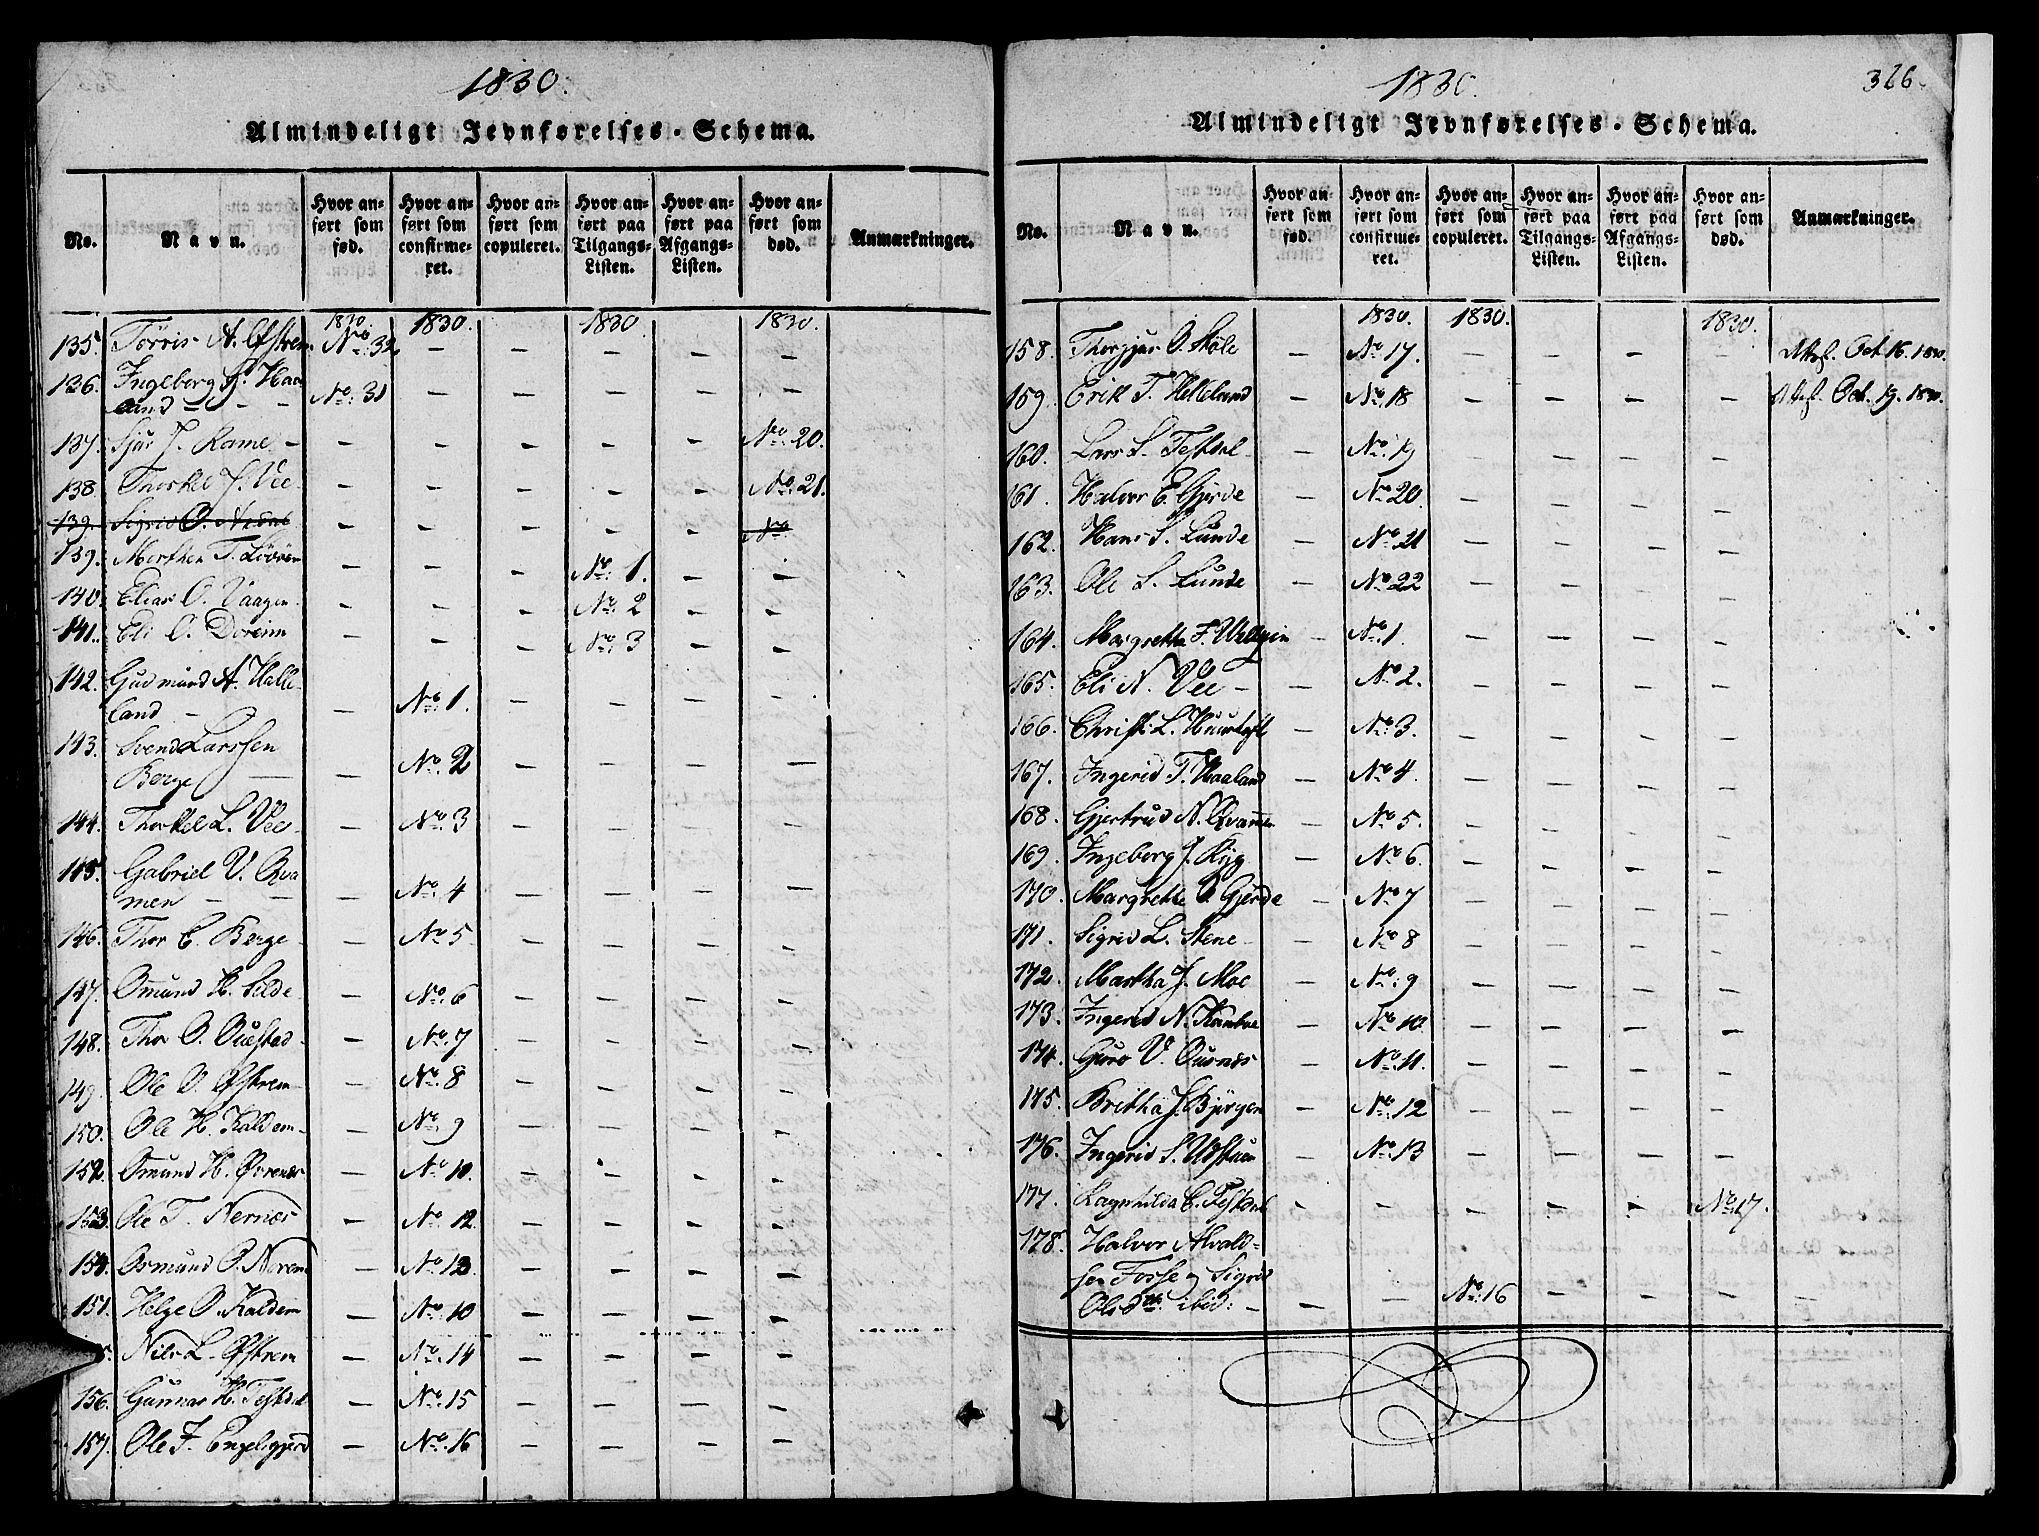 1830.
Almindeligt Jevnførelses-Schema.
No. Navn. Hvor anført som fød. Hvor anført som confirmeret. Hvor anført som copuleret. Hvor anført paa Tilgangs-Listen. Hvor anført paa Afgangs-Listen. Hvor anført som død. Anmærkninger.
1830 1830. 1830 1830.
135. Törris A. Østrem No: 32 – – – – –
136. Ingeborg H. Haa
land – – – No: 31 – – – – –
137. Sjur J. Rame – – – – – – No: 20.
138 Thorkel J. Vee – – – – – No: 21.
139. Sigrid O. – – – – – No
139. Morthen T. – – – No: 1. – –
140. Elias O. Vaagen – – – No: 2 – –
141. Eli O. Doreim – – – No: 3 – –
142. Gudmund A. Helle-
land – – No: 1. – – – –
143. Svend Larssen
Berge – – No: 2 – – – –
144. Thorkel L. Vee – – No: 3 – – – –
145. Gabriel V. Qva
men – – – No: 4 – – – –
146. Thor E. Berge – – No: 5 – – – –
147. Omund H. Selde – No: 6 – – – –
148. Thor O. – No: 7 – – – –
149. Ole O. Østrem – No: 8 – – – –
150. Ole H. Kaldem – No: 9 – – – –
152. Omund H. Øvrenes – No: 10. – – – –
153. Ole T. Nernæs – No: 12. – – – –
154. Osmund O. – No: 13 – – – –
151. Helge O. Kaldem – No: 10 – – – –
Nils L. Østrem – No: 14 – – – –
156. Gunnar H. Testdal – No: 15 – – – –
157. Ole J. Engelsgjerd – No: 16 – – – –
1830. 326.
Almindeligt Jevnførelses-Schema.
No. Navn. Hvor anført som fød. Hvor anført som confirmeret. Hvor anført som copuleret. Hvor anført paa Tilgangs-Listen. Hvor anført paa Afgangs-Listen. Hvor anført som død. Anmærkninger.
1830. 1830. 1830.
158. O. Støle – No: 17. – – – – Oct. 16. 1830.
159. Erik T. Helleland – No: 18 – – – – Oct. 19. 1830.
160. Lars L. Testdal – No: 19 – – – –
161. Halvor E. Gjerde – No: 20. – – – –
162. Hans S. Lunde – No: 21 – – – –
163. Ole L. Lunde – No: 22 – – – –
164. Margrethe F. – No: 1. – – – –
165. Eli N. Vee – – No: 2. – – – –
166. Christi L. – No: 3. – – – –
167. Ingerid T. Haaland – No: 4. – – – –
168. Gjertrud N. Qvammen – No: 5. – – – –
169. Ingeborg J. Ryg – No: 6. – – – –
170. Margrethe O Gjerde – No: 7 – – – –
171. Sigrid L. Stene – – No: 8 – – – –
172. Martha J. Moe – No: 9 – – – –
173. Ingerid N. – No: 10. – – – –
174. Guro V. – No: 11. – – – –
175. Britha J. Bjørgen – No: 12 – – – –
176. Ingerid S. Udstuen – No: 13 – – – –
177. Ragnhilda E. Testdal – – – – – No: 17.
178. Halvor Alvald-
sen Fosse og Sigrid
Olsdtr: ibid: – – – No: 16 – – –